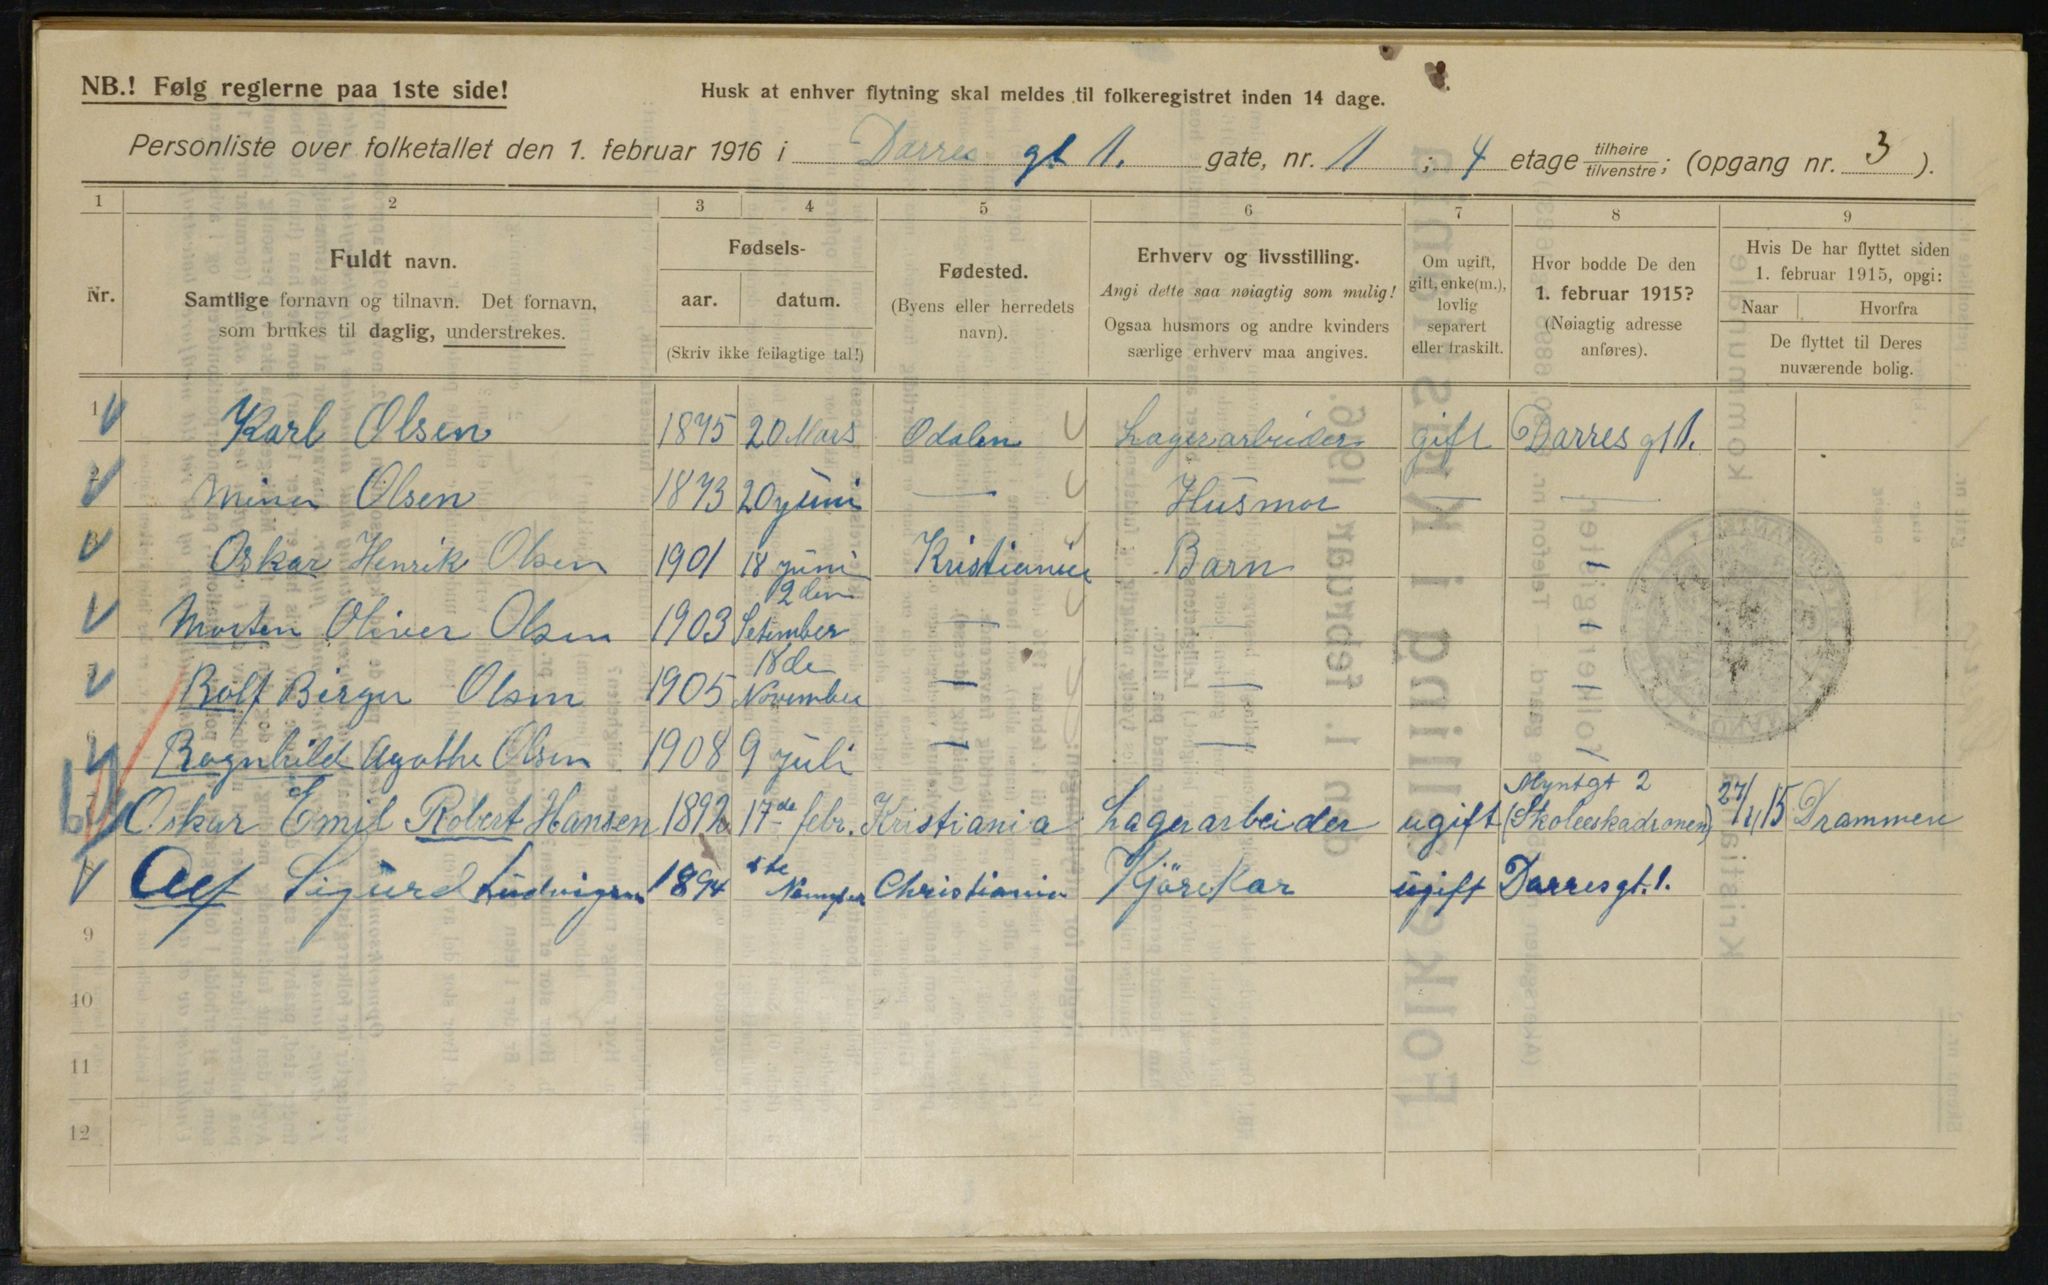 NB.! Følg reglerne paa 1ste side!
Husk at enhver flytning skal meldes til folkeregistret inden 14 dage.
Personliste over folketallet den 1. februar 1916 i Darres gt 1. gate, nr. 1 ; 4 etage tilhøire/tilvenstre; (opgang nr. 3 ).
1 2 3 4 5 6 7 8 9
Nr.
Fuldt navn.
Samtlige fornavn og tilnavn. Det fornavn,
som brukes til daglig, understrekes.
Fødsels-
aar. datum.
(Skriv ikke feilagtige tal!)
Fødested.
(Byens eller herredets
navn).
Erhverv og livsstilling.
Angi dette saa nøiagtig som mulig!
Ogsaa husmors og andre kvinders
særlige erhverv maa angives.
Om ugift,
gift, enke(m.),
lovlig
separert
eller fraskilt.
Hvor bodde De den
1. februar 1915?
(Nøiagtig adresse
anføres).
Hvis De har flyttet siden
1. februar 1915, opgi:
Naar Hvorfra
De flyttet til Deres
nuværende bolig.
1 Karl Olsen 1875 20 Mars Odalen Lagerarbeider gift Darres gt 1.
2 Olsen 1873 20 juni — Husmor — —
3 Oskar Henrik Olsen 1901 18 juni Kristiania Barn
4 Morten Oliver Olsen 1903 2 den Setember — —
5 Rolf Berger Olsen 1905 18 de November — —
6 Ragnhild Agathe Olsen 1908 9 juli — —
7 Oskar Emil Robert Hansen 1892 17de febr. Kristiania Lagerarbeider ugift Myntgt 2 (Skoleeskadronen) Drammen
8 Sigurd Ludvigsen 1894 Christiania Kjörekar ugift Darresgt. 1.
9
10
11
12